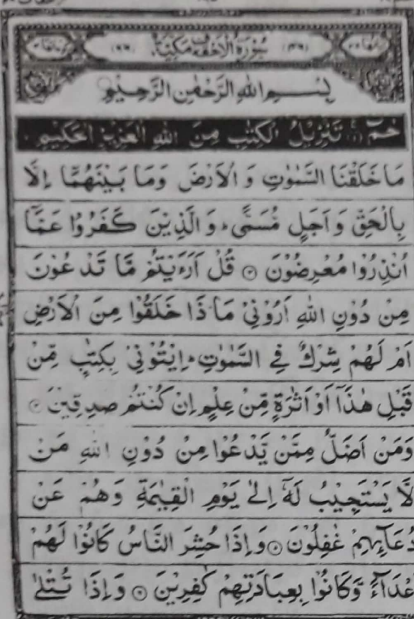 سُوْرَةُ الْاَحْقَافِ مَكِّيَّةٌ (٤٦) (٦٦)
بِسْمِ اللهِ الرَّحْمٰنِ الرَّحِيْمِ
حٰمٓ ۚ تَنْزِيْلُ الْكِتٰبِ مِنَ اللهِ الْعَزِيْزِ الْحَكِيْمِ
مَا خَلَقْنَا السَّمٰوٰتِ وَالْاَرْضَ وَمَا بَيْنَهُمَآ اِلَّا
بِالْحَقِّ وَاَجَلٍ مُّسَمًّى ؕ وَالَّذِيْنَ كَفَرُوْا عَمَّآ
اُنْذِرُوْا مُعْرِضُوْنَ ۝ قُلْ اَرَءَيْتُمْ مَّا تَدْعُوْنَ
مِنْ دُوْنِ اللهِ اَرُوْنِيْ مَاذَا خَلَقُوْا مِنَ الْاَرْضِ
اَمْ لَهُمْ شِرْكٌ فِي السَّمٰوٰتِ ؕ اِيْتُوْنِيْ بِكِتٰبٍ مِّنْ
قَبْلِ هٰذَآ اَوْ اَثٰرَةٍ مِّنْ عِلْمٍ اِنْ كُنْتُمْ صٰدِقِيْنَ ۝
وَمَنْ اَضَلُّ مِمَّنْ يَّدْعُوْا مِنْ دُوْنِ اللهِ مَنْ
لَّا يَسْتَجِيْبُ لَهٗٓ اِلٰى يَوْمِ الْقِيٰمَةِ وَهُمْ عَنْ
دُعَآئِهِمْ غٰفِلُوْنَ ۝ وَاِذَا حُشِرَ النَّاسُ كَانُوْا لَهُمْ
اَعْدَآءً وَّكَانُوْا بِعِبَادَتِهِمْ كٰفِرِيْنَ ۝ وَاِذَا تُتْلٰى